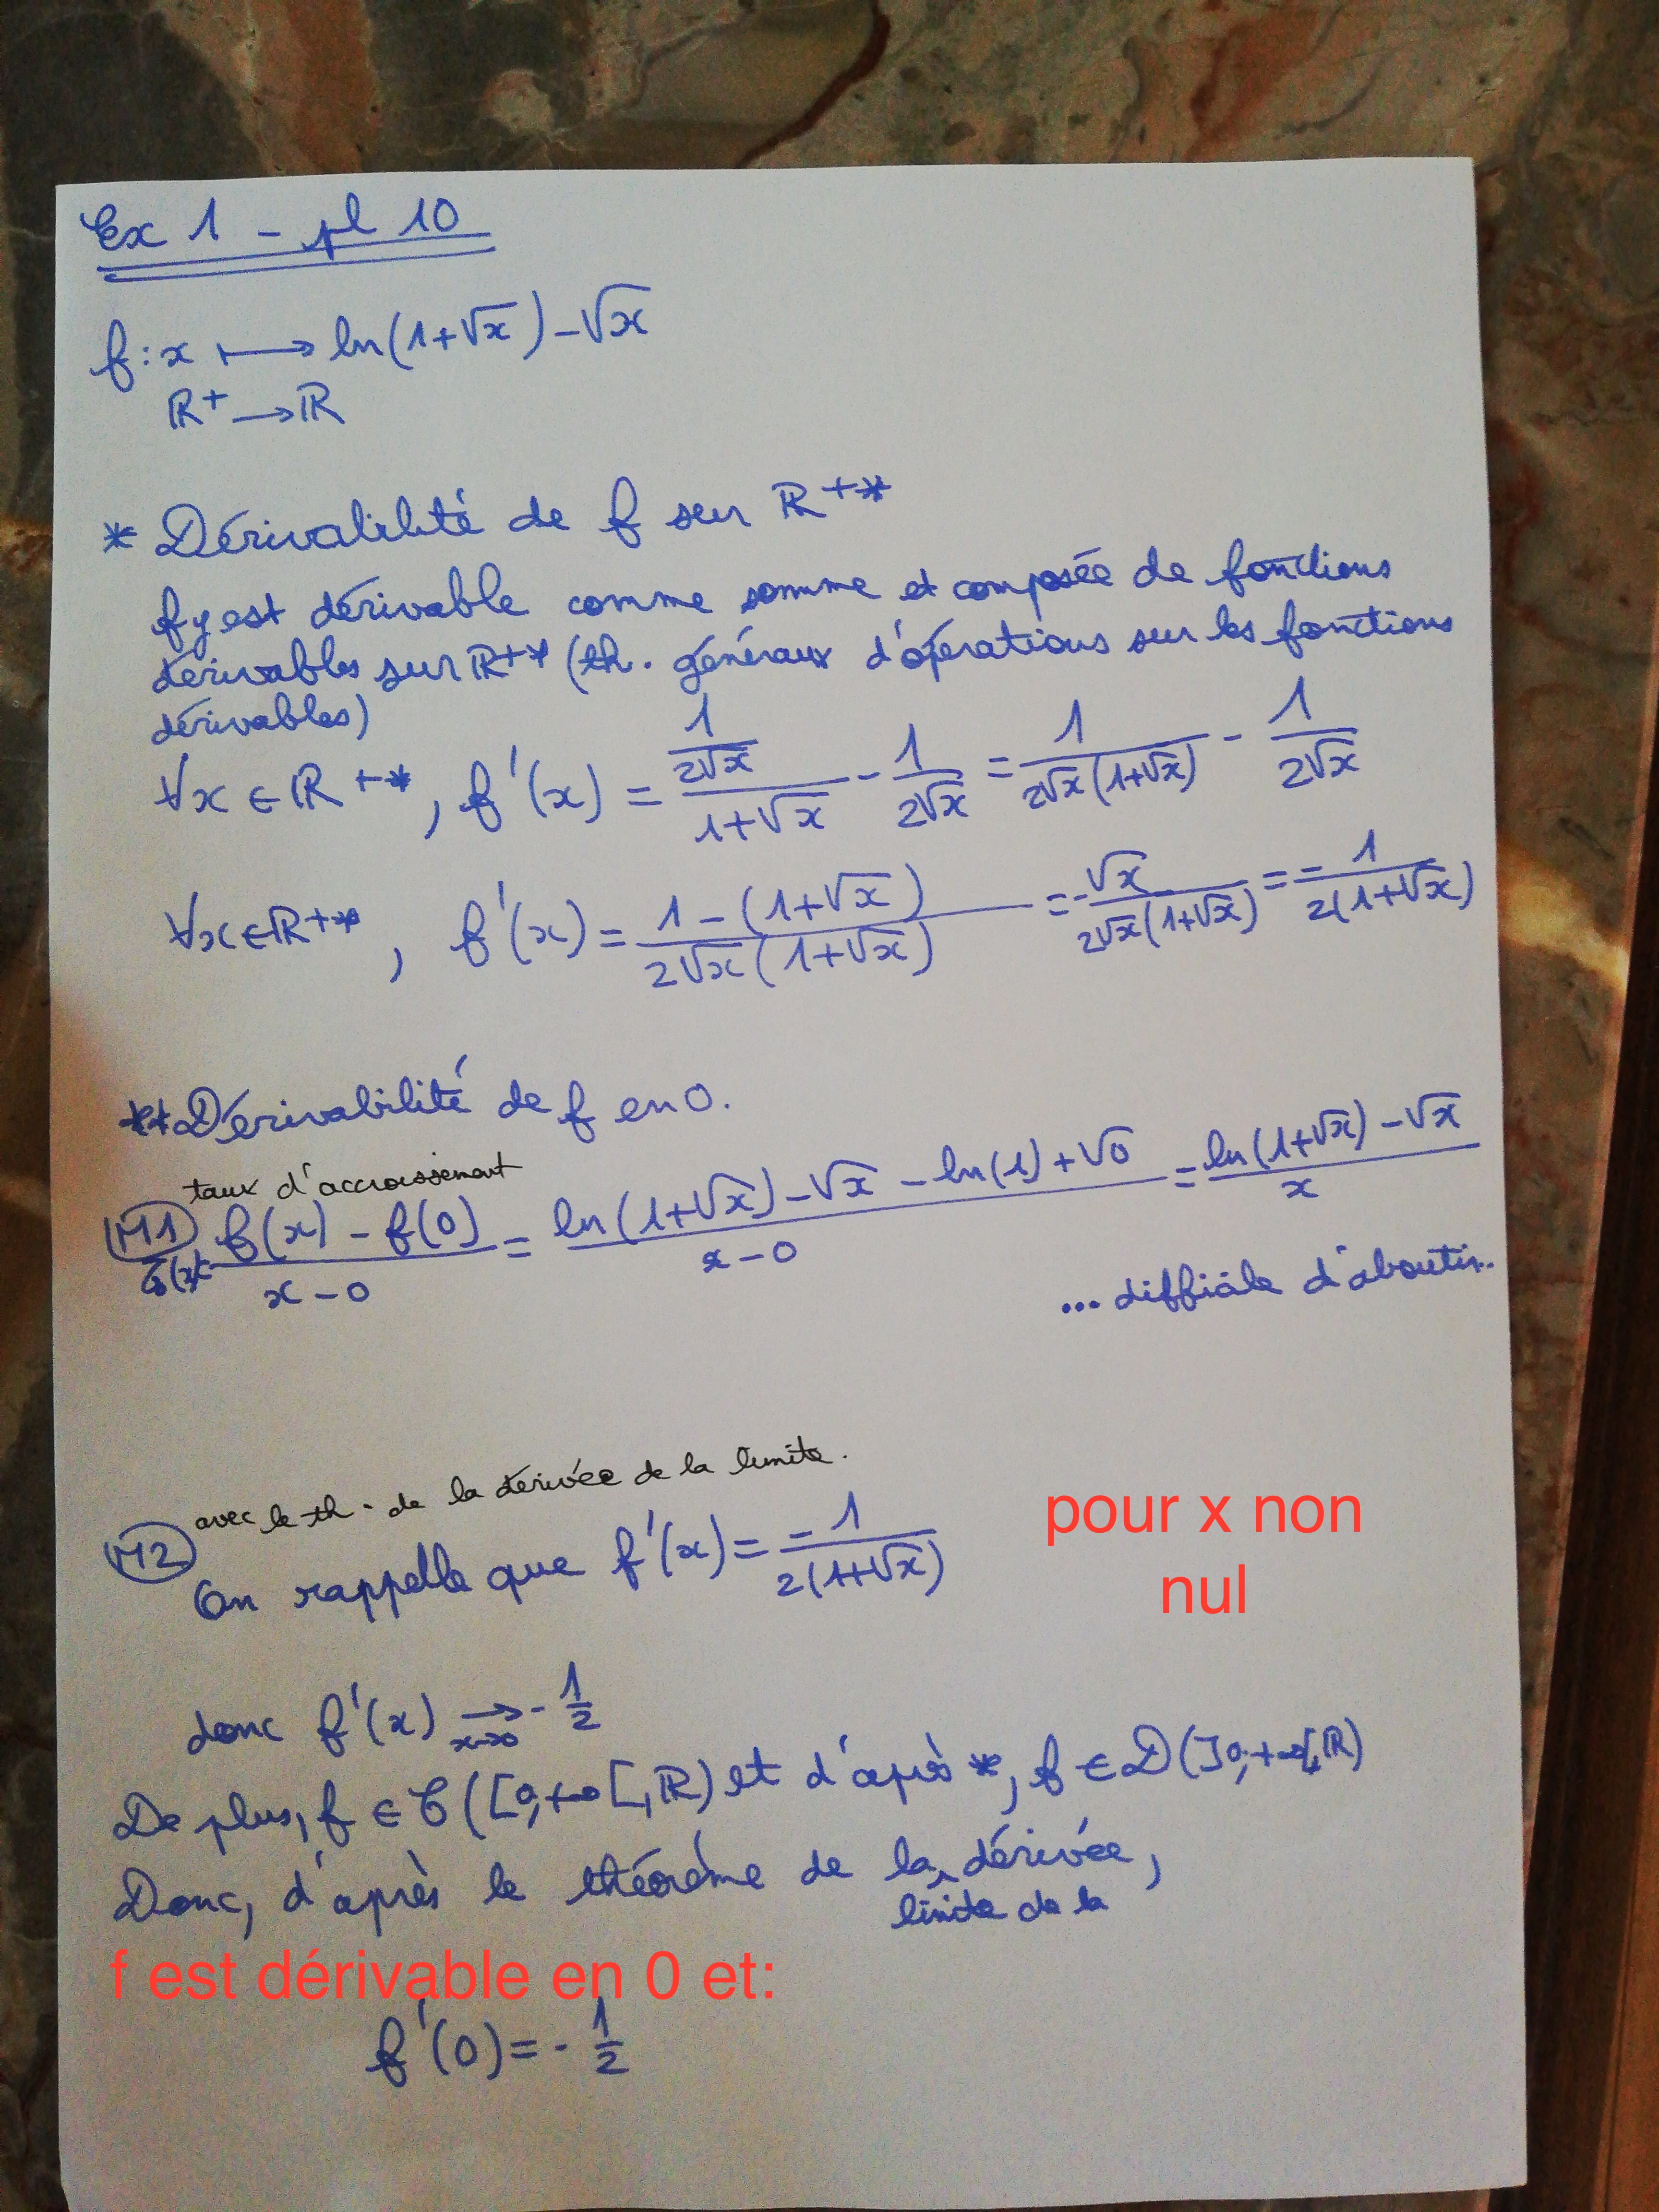 Ex 1 - pl 10
f : x ⟼ ln(1+√x) - √x
ℝ+ ⟶ ℝ
* Dérivabilité de f sur ℝ+*
f y est dérivable comme somme et composée de fonctions
dérivables sur ℝ+* (th. généraux d'opérations sur les fonctions
dérivables)
∀x ∈ ℝ+*, f'(x) = (1/(2√x))/(1+√x) - 1/(2√x) = 1/(2√x(1+√x)) - 1/(2√x)
∀x ∈ ℝ+*, f'(x) = (1-(1+√x))/(2√x(1+√x)) = -√x/(2√x(1+√x)) = -1/(2(1+√x))
** Dérivabilité de f en 0.
taux d'accroissement
M1 τ(x) = (f(x) - f(0))/(x-0) = (ln(1+√x) - √x - ln(1) + √0)/(x-0) = (ln(1+√x) - √x)/x
... difficile d'aboutir..
avec le th. de la dérivée de la limite.
M2 On rappelle que f'(x) = -1/(2(1+√x)) pour x non
nul
donc f'(x) ⟶ -1/2
x→0
De plus, f ∈ C([0,+∞[,ℝ) et d'après *, f ∈ D(]0;+∞[,ℝ)
Donc, d'après le théorème de la dérivée,
limite de la
f est dérivable en 0 et:
f'(0) = -1/2